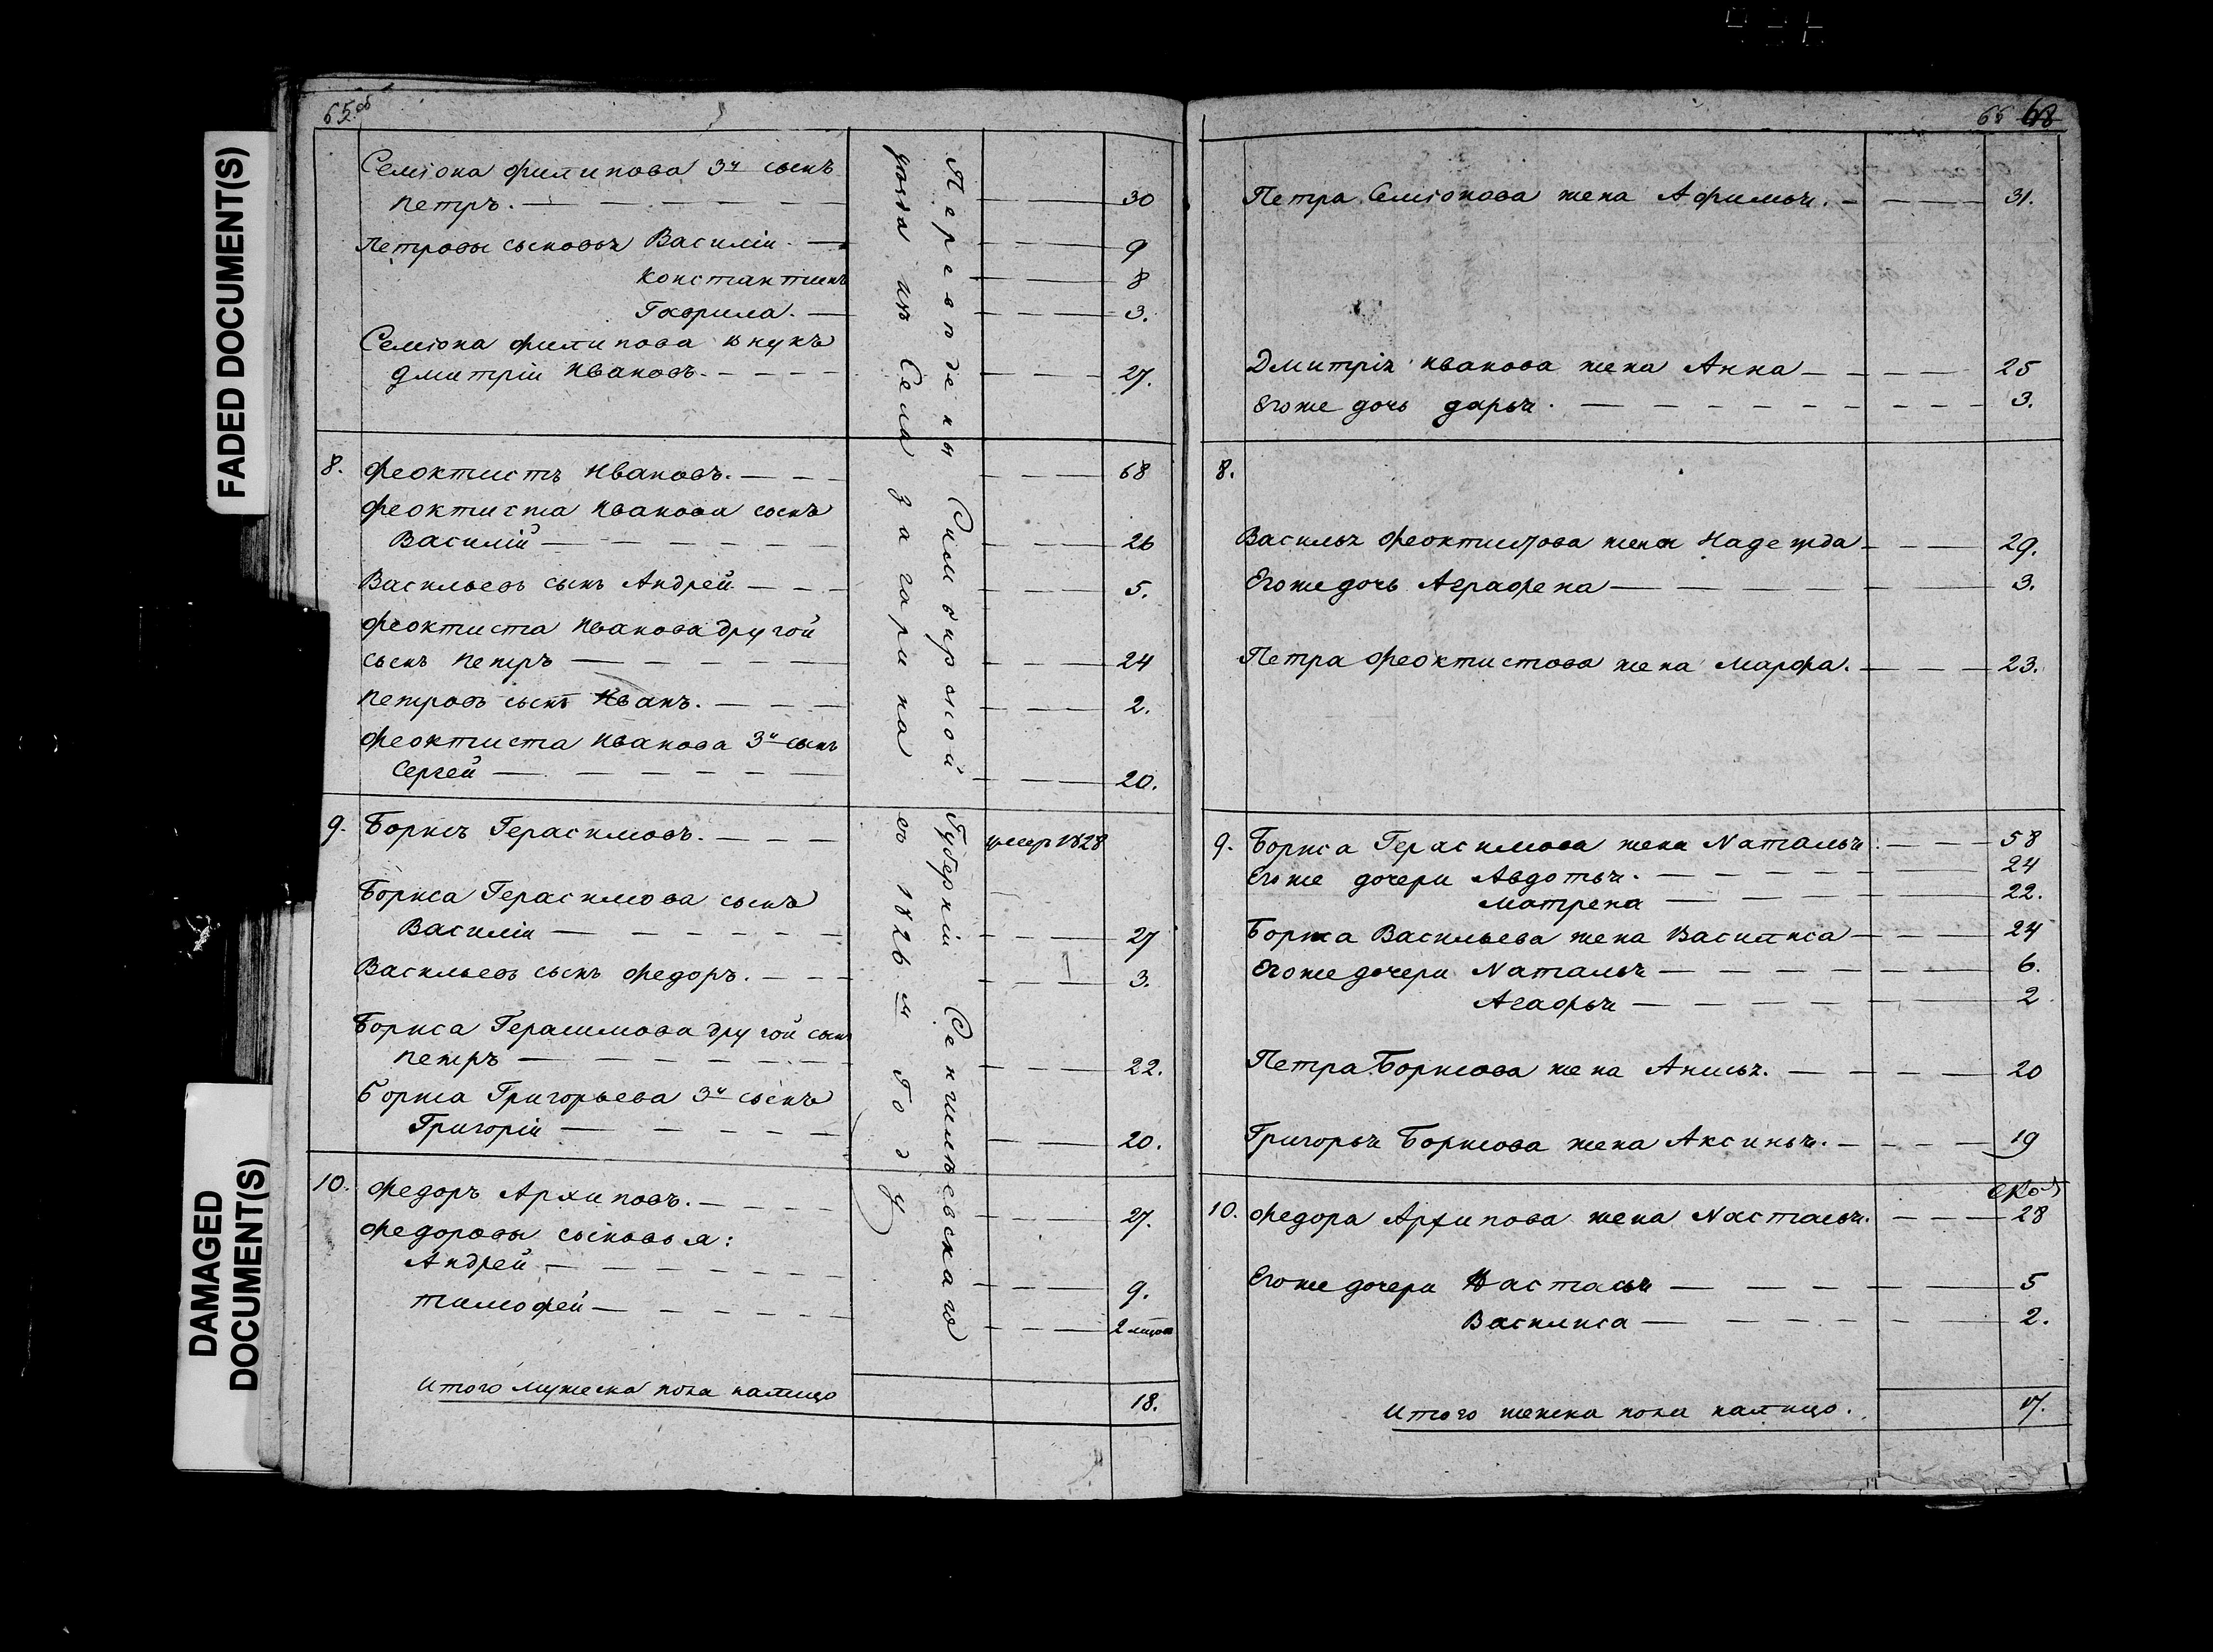 FADED DOCUMENT(S)
DAMAGED
DOCUMENT(S)
65об
Семіона филипова 3й сынъ
петръ. 30
Петровы сыновья Василіи 9
константинъ 8
Гаврила. 3.
Семіона филипова внукъ
дмитріи Ивановъ. 27.
8. феоктистъ Ивановъ. 68
феоктиста Иванова сынъ
Василій 26
Васильевъ сынъ Андрей 5.
феоктиста Иванова другой
сынъ петръ 24
петровъ сынъ Иванъ. 2.
феоктиста Иванова 3й сынъ
Сергей 20.
9. Борисъ Герасимовъ. умер 1828
Бориса Герасимова сынъ
Василіи 27
Васильевъ сынъ федоръ. 3.
Бориса Герасимова другой сынъ
петръ 22.
Бориса Григорьева 3й сынъ
Григоріи 20.
10. федоръ Архиповъ. 27.
федоровы сыновья:
Андрей 9.
тимофей 2
Итого мужеска пола налицо 18.
Переведены Симбирской Губерніи Сенгилѣевскаго
уезда изъ Села загарина въ 1826м Году
66 68
Петра Семіонова жена Афимья. 31.
Дмитрія иванова жена Анна 25
Егоже дочь дарья. 3.
8.
Василья феоктистова жена Надежда 29.
Егоже дочь Аграфена 3.
Петра феоктистова жена марфа. 23.
9. Бориса Герасимова жена Наталья. 58
Егоже дочери Авдотья. 24
матрена 22.
Бориса Васильева жена Василиса 24
Егоже дочери Наталья 6.
Агафья 2
Петра Борисова жена Анисья. 20
Григорья Борисова жена Аксинья. 19
10. федора Архипова жена Настасья. 28
Егоже дочери Настасья 5
Василиса 2.
Итого женска пола налицо. 17.